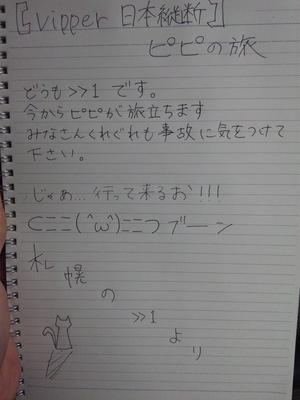 [vipper 日本縦断]
ピピの旅
どうも>>1 です。
今からピピが旅立ちます
みなさんくれぐれも事故に気をつけて
下さい。
じゃぁ…行って来るお!!!
⊂ニニ(^ω^)ニニつブーン
札幌の
>>1
より